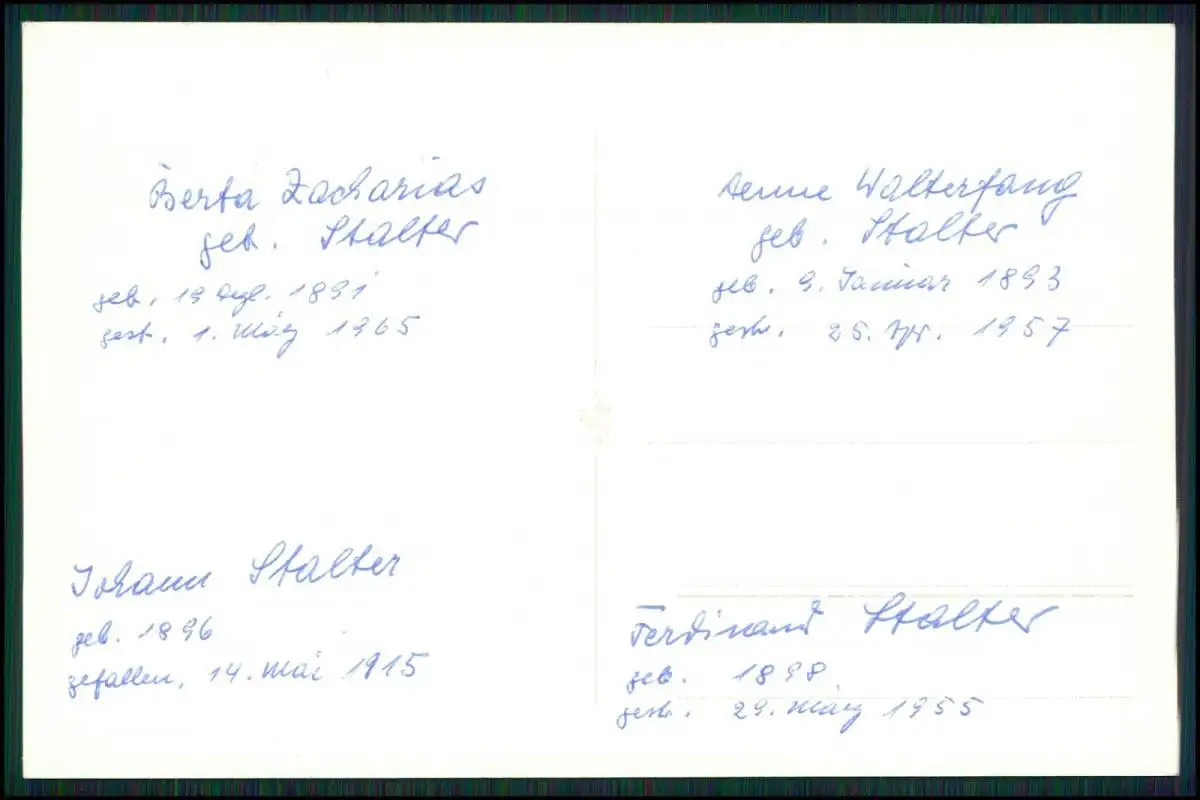 Berta Zacharias
geb. Stalter
geb. 19 Dez. 1891
gest. 1. März 1965
Walterfang
geb. Stalter
geb. 9. Januar 1893
gest. 25. Apr. 1957
Johann Stalter
geb. 1896
gefallen, 14. Mai 1915
Ferdinand Stalter
geb. 1898
gest. 29. März 1955